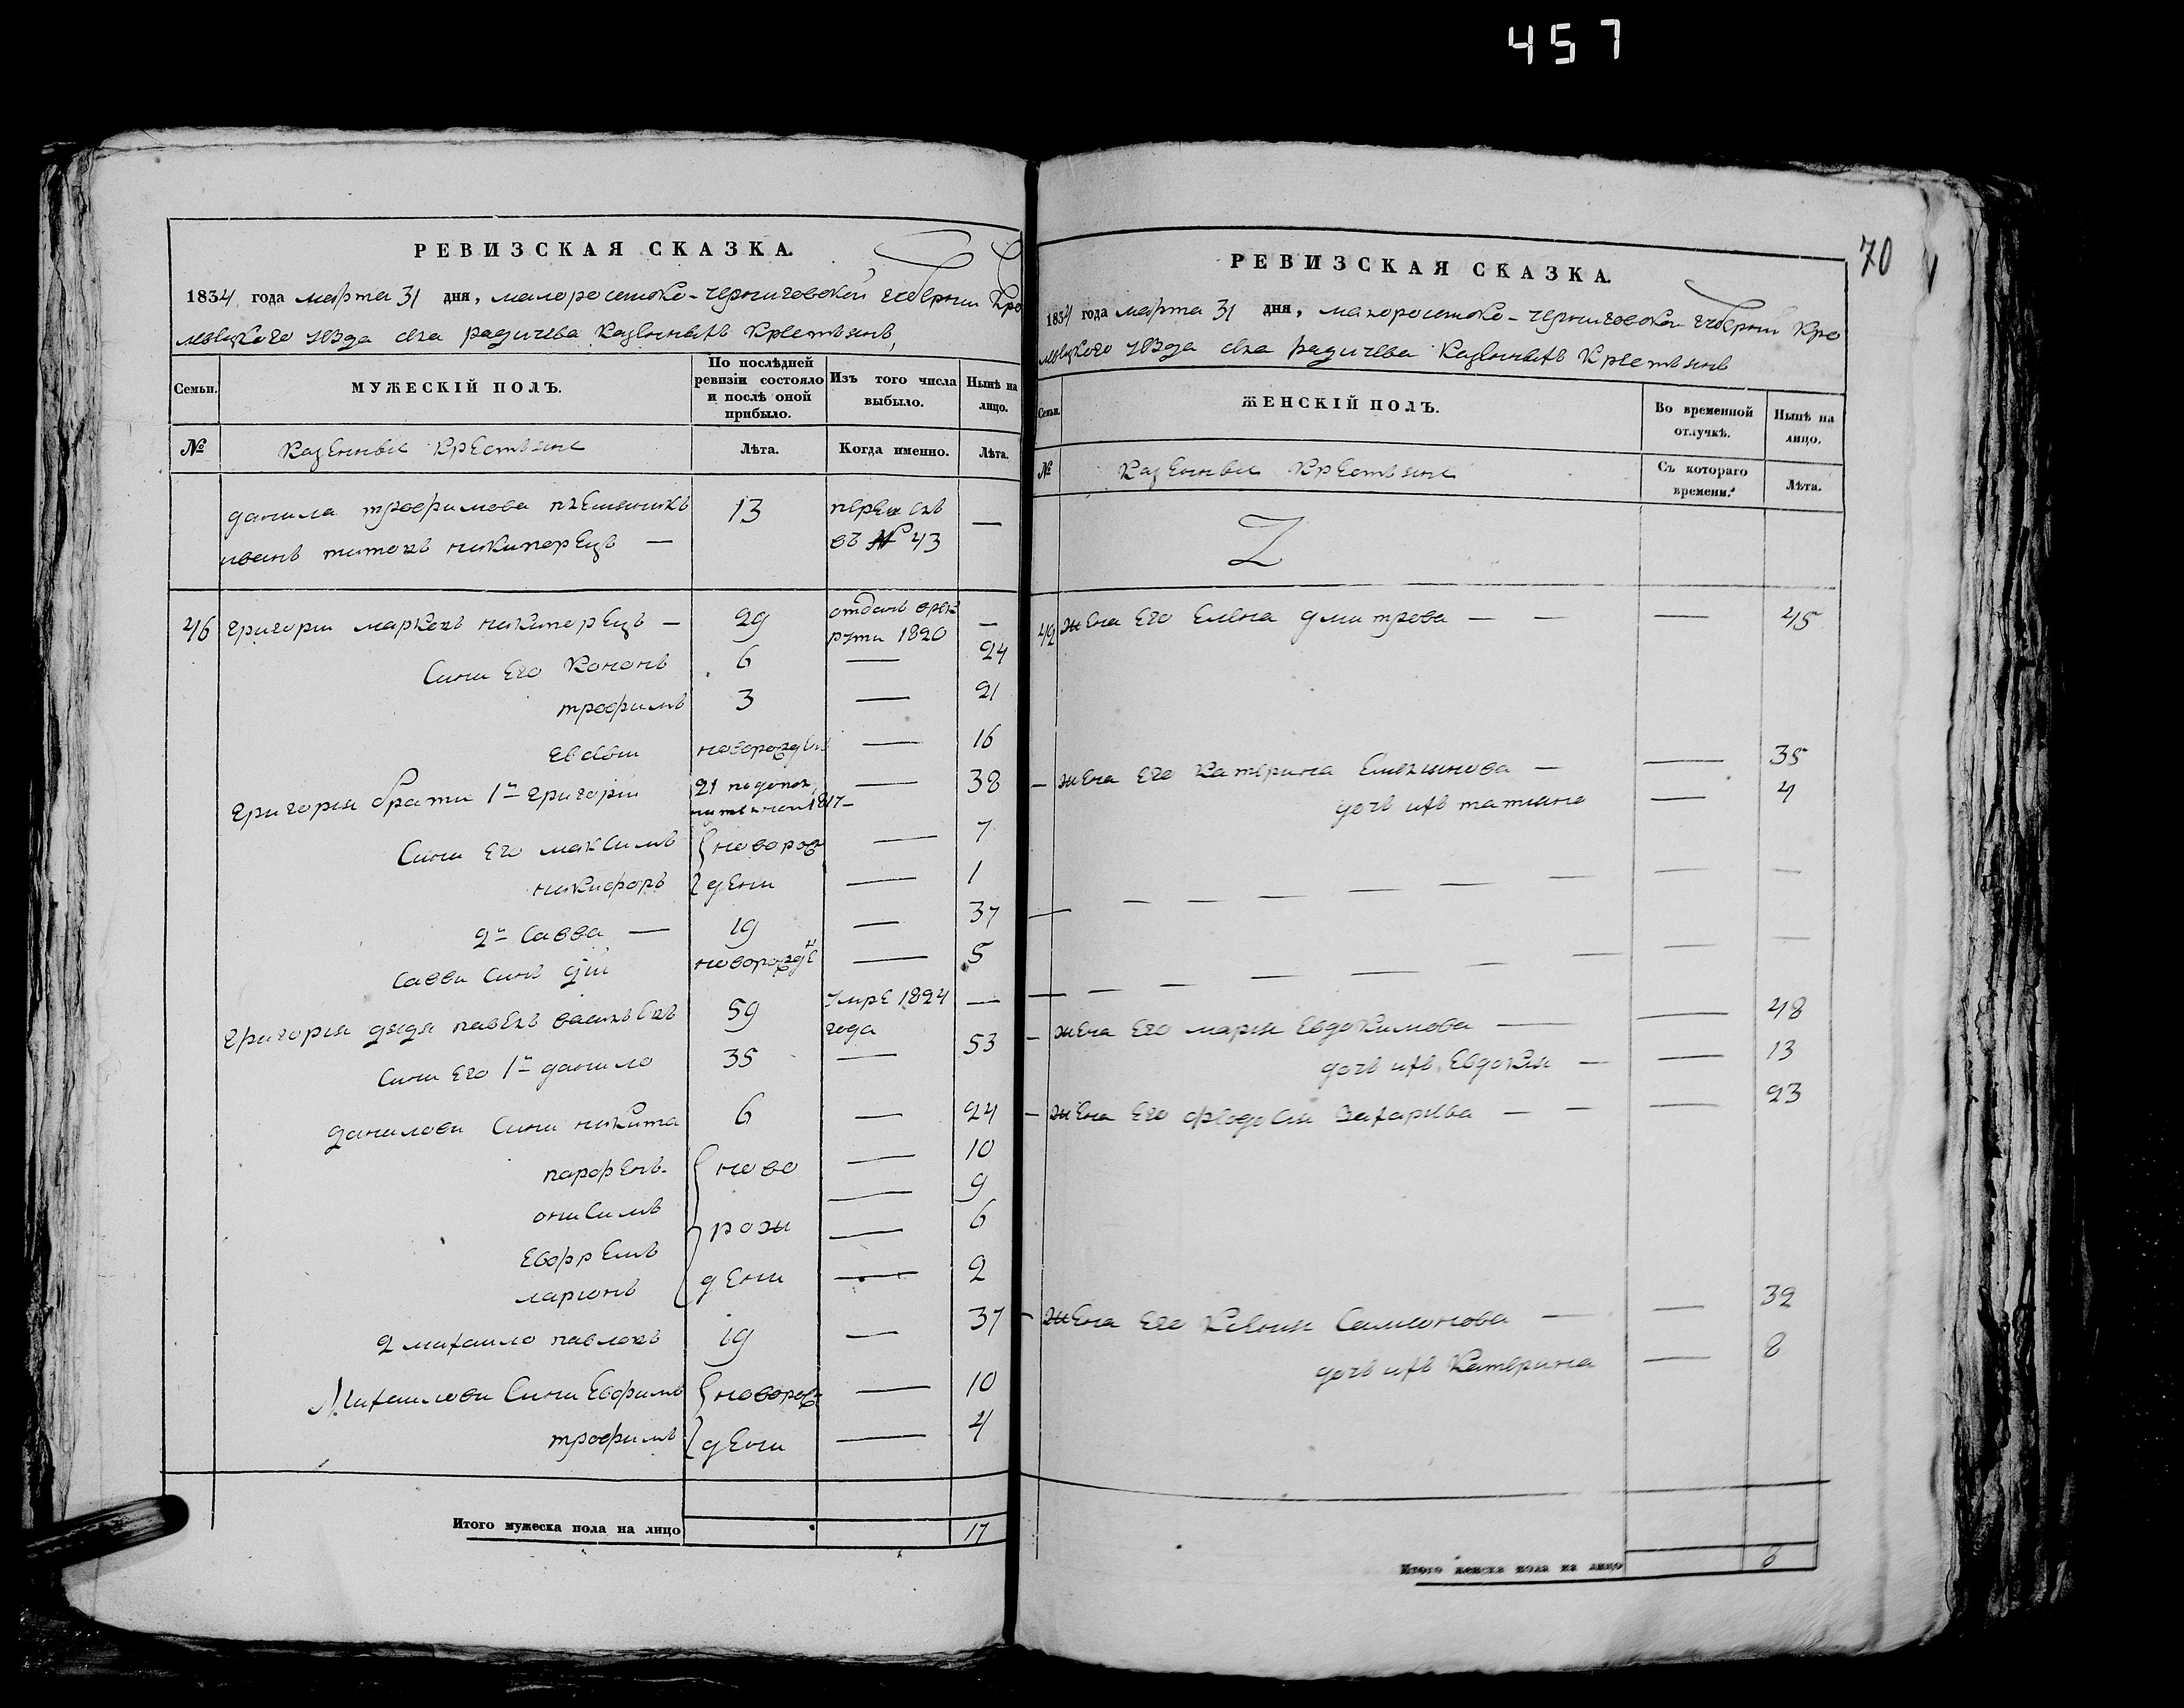 457
РЕВИЗСКАЯ СКАЗКА.
1834 года марта 31 дня, малоросийско-черниговской губернии Кро
левецкого уезда села радичева Казенныхъ Крестьянъ
Семьи.
МУЖЕСКІЙ ПОЛЪ.
По послѣдней ревизіи состояло и послѣ оной прибыло.
Изъ того числа выбыло.
Нынѣ на лицо.
№
Казенные Крестьяне
Лѣта.
Когда именно.
Лѣта.
данила трофимова племянникъ 13 —
иванъ титовъ никиперецъ — въ № 43
46 григори марковъ никиперецъ — 29 отданъ врек —
рути 1820
Сини Его Кононъ 6 — 24
трофимъ 3 — 21
Евсеви новорожден — 16
григория брати 1й григорий 21 1817 — 38
Сини Его максимъ новорож — 7
никифоръ дени — 1
2й Савва — 19 — 37
Савви Синъ новорожде — 5
григория дядя павелъ 59 умре 1824 —
года
Сини Его 1й данило 35 — 53
данилови Сини никита 6 — 24
парфенъ ново — 10
онисимъ — 9
Евфремъ рож — 6
ларионъ дени — 2
2 михаило павловъ 19 — 37
Михаилови Сини Евфимъ новорож — 10
трофимъ дени — 4
Итого мужеска пола на лицо 17
70
РЕВИЗСКАЯ СКАЗКА.
1834 года марта 31 дня, малоросийско-черниговской губернии Кро
левецкого уезда села радичева Казенныхъ Крестьянъ
Семьи.
ЖЕНСКІЙ ПОЛЪ.
Во временной отлучкѣ.
Нынѣ на лицо.
№
Казенные Крестьяне
Съ котораго времени.
Лѣта.
жена Его Елена дмитрова — — — 45
— жена Его Катерина — — 35
дочь ихъ татияна — 4
— жена Его мария Евдокимова — — 48
дочь ихъ Евдокия — — 13
— жена Его феодосия Захариева — — — 23
— жена Его Ксения Самионова — — 32
дочь ихъ Катерина — 8
Итого женска пола на лицо 8